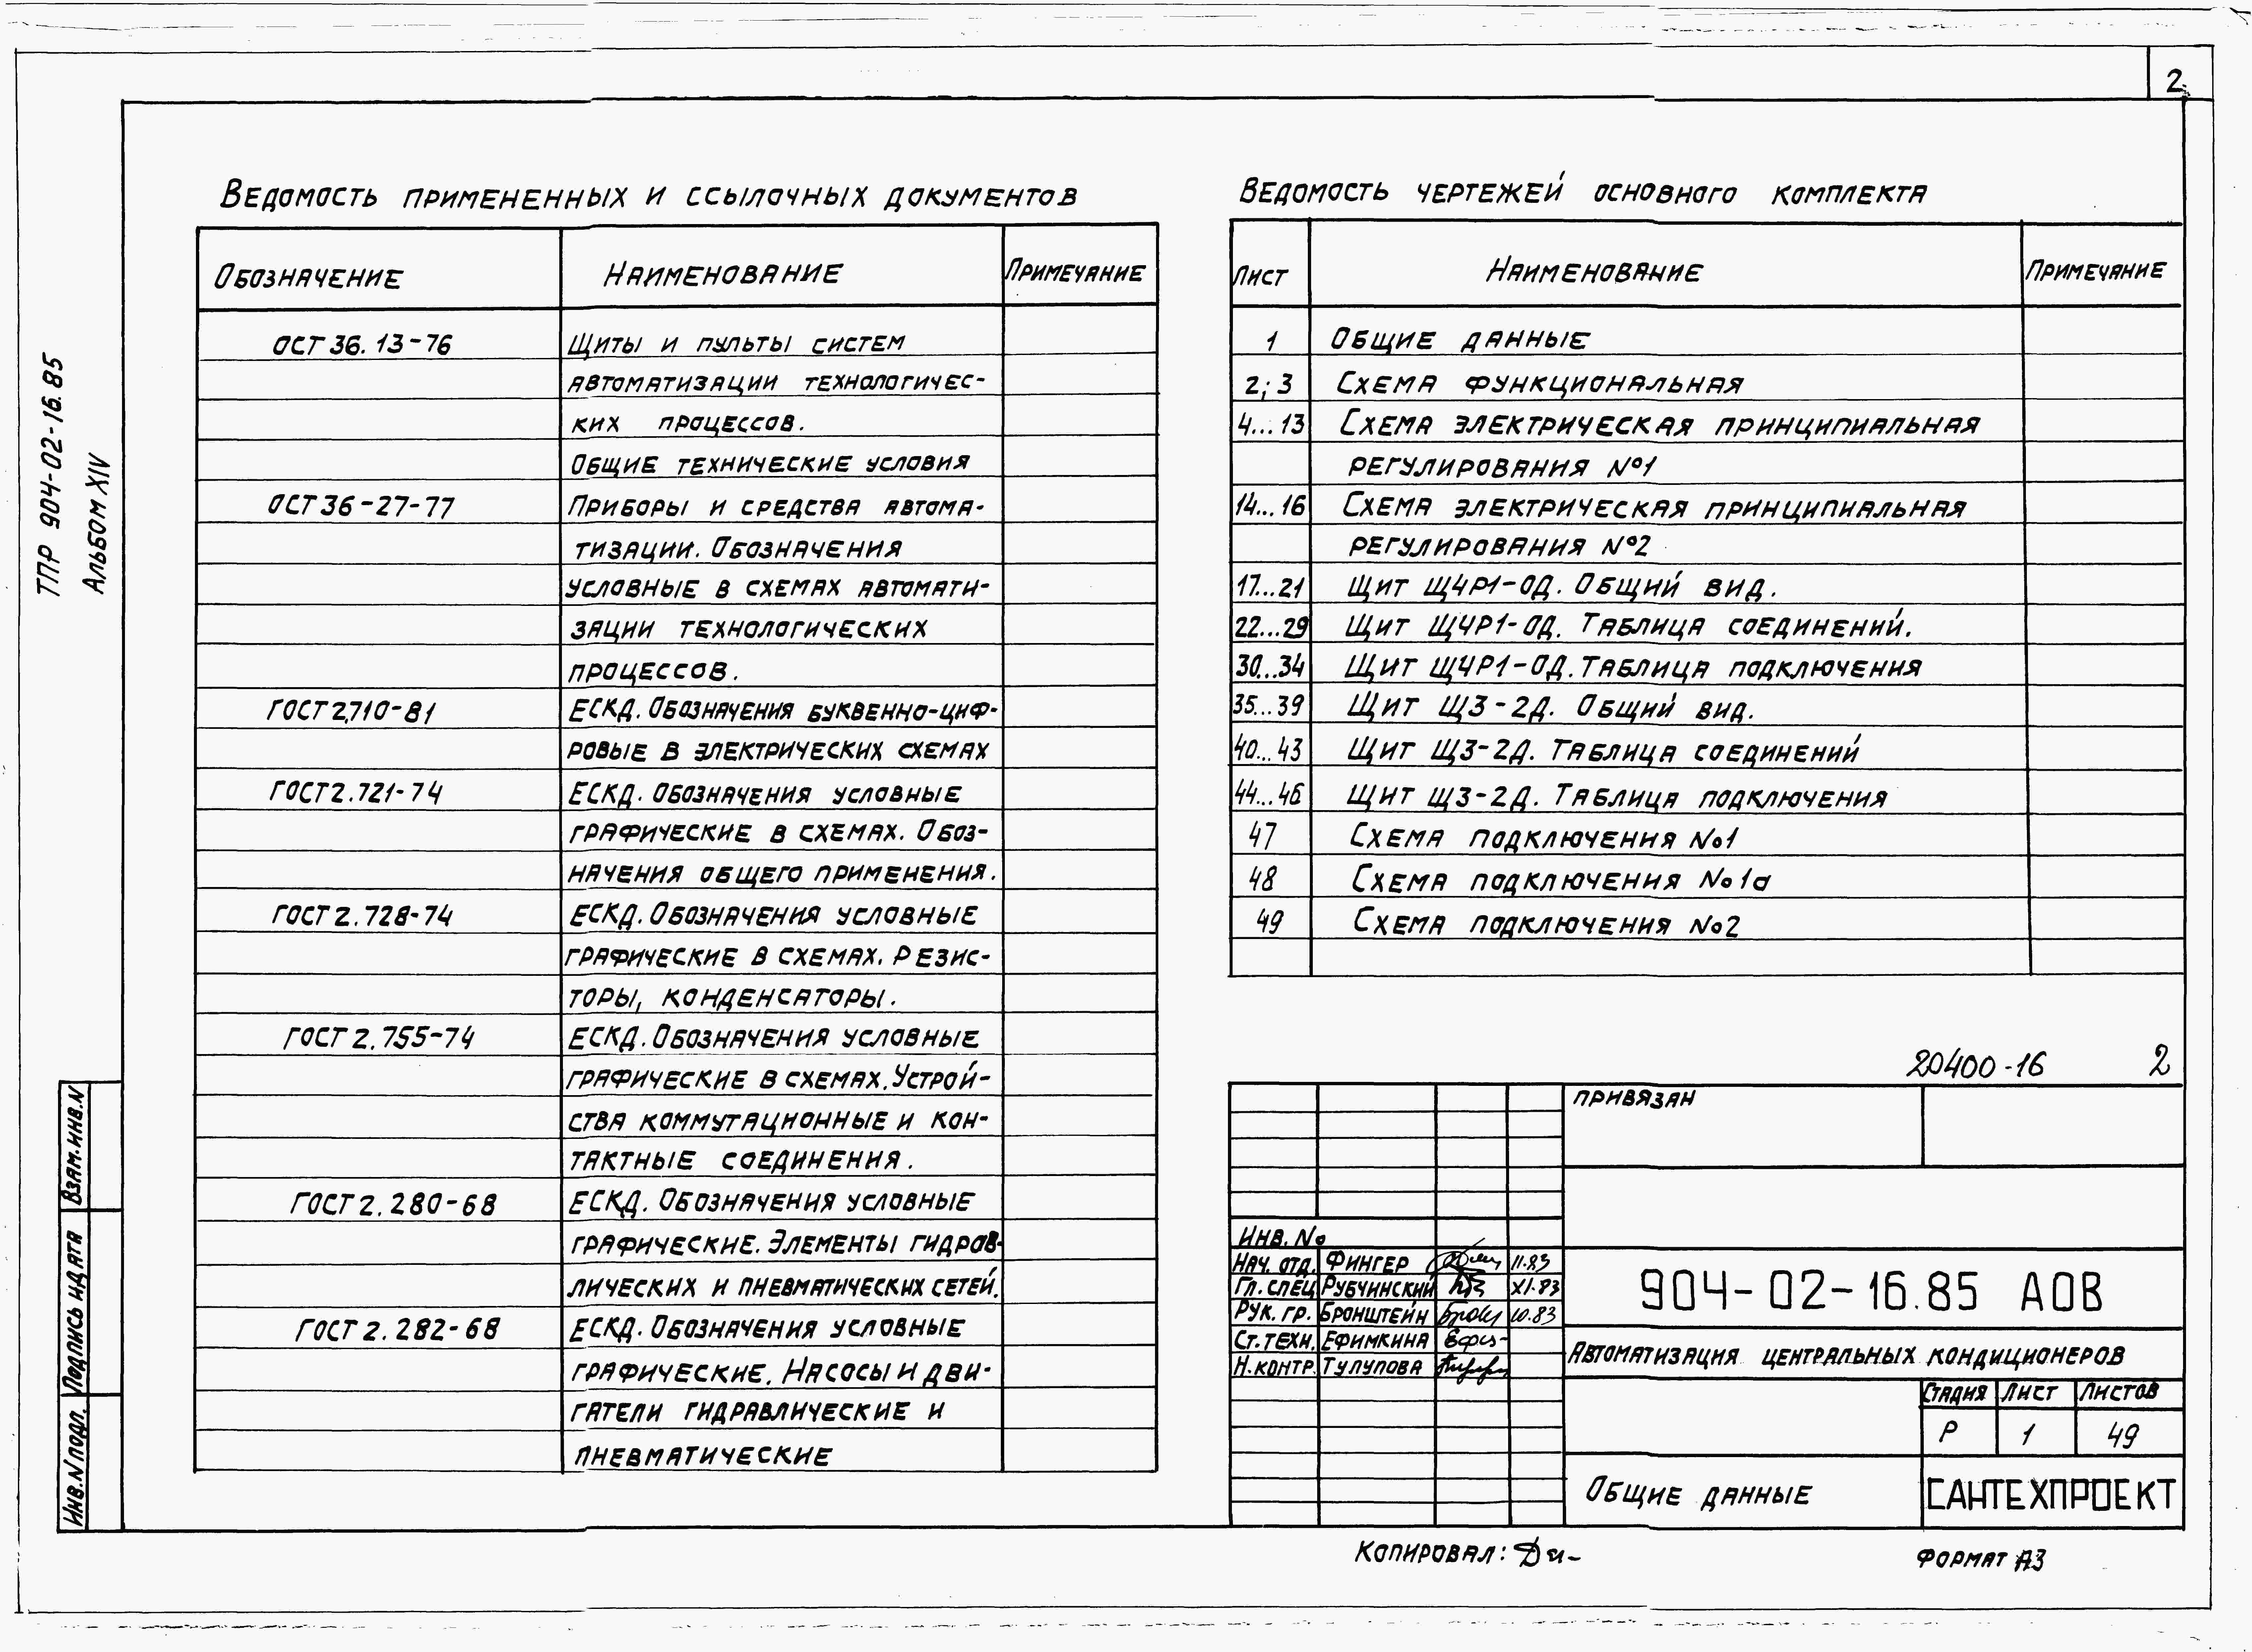 2
ТПР 904-02-16.85
Альбом XIV
Ведомость примененных и ссылочных документов
Обозначение Наименование Примечание
ОСТ 36.13-76 Щиты и пульты систем
автоматизации технологичес-
ких процессов.
Общие технические условия
ОСТ 36-27-77 Приборы и средства автома-
тизации. Обозначения
условные в схемах автомати-
зации технологических
процессов.
ГОСТ 2.710-81 ЕСКД. Обозначения буквенно-циф-
ровые в электрических схемах
ГОСТ 2.721-74 ЕСКД. Обозначения условные
графические в схемах. Обоз-
начения общего применения.
ГОСТ 2.728-74 ЕСКД. Обозначения условные
графические в схемах. Резис-
торы, конденсаторы.
ГОСТ 2.755-74 ЕСКД. Обозначения условные
графические в схемах. Устрой-
ства коммутационные и кон-
тактные соединения.
ГОСТ 2.280-68 ЕСКД. Обозначения условные
графические. Элементы гидрав-
лических и пневматических сетей.
ГОСТ 2.282-68 ЕСКД. Обозначения условные
графические. Насосы и дви-
гатели гидравлические и
пневматические
Ведомость чертежей основного комплекта
Лист Наименование Примечание
1 Общие данные
2; 3 Схема функциональная
4...13 Схема электрическая принципиальная
регулирования №1
14...16 Схема электрическая принципиальная
регулирования №2
17...21 Щит Щ4Р1-ОД. Общий вид.
22...29 Щит Щ4Р1-ОД. Таблица соединений.
30...34 Щит Щ4Р1-ОД. Таблица подключения
35...39 Щит Щ3-2Д. Общий вид.
40...43 Щит Щ3-2Д. Таблица соединений
44...46 Щит Щ3-2Д. Таблица подключения
47 Схема подключения №1
48 Схема подключения №1а
49 Схема подключения №2
20400-16 2
Привязан
Инв. №
Нач. отд. Фингер 11.83
Гл. спец Рубчинский XI.83
Рук. гр. Бронштейн 10.83
Ст. техн. Ефимкина
Н. контр. Тулупова
904-02-16.85 АОВ
Автоматизация центральных кондиционеров
Стадия Лист Листов
Р 1 49
Общие данные
САНТЕХПРОЕКТ
Взам. инв. N
Подпись и дата
Инв. N подл.
Копировал:
Формат А3